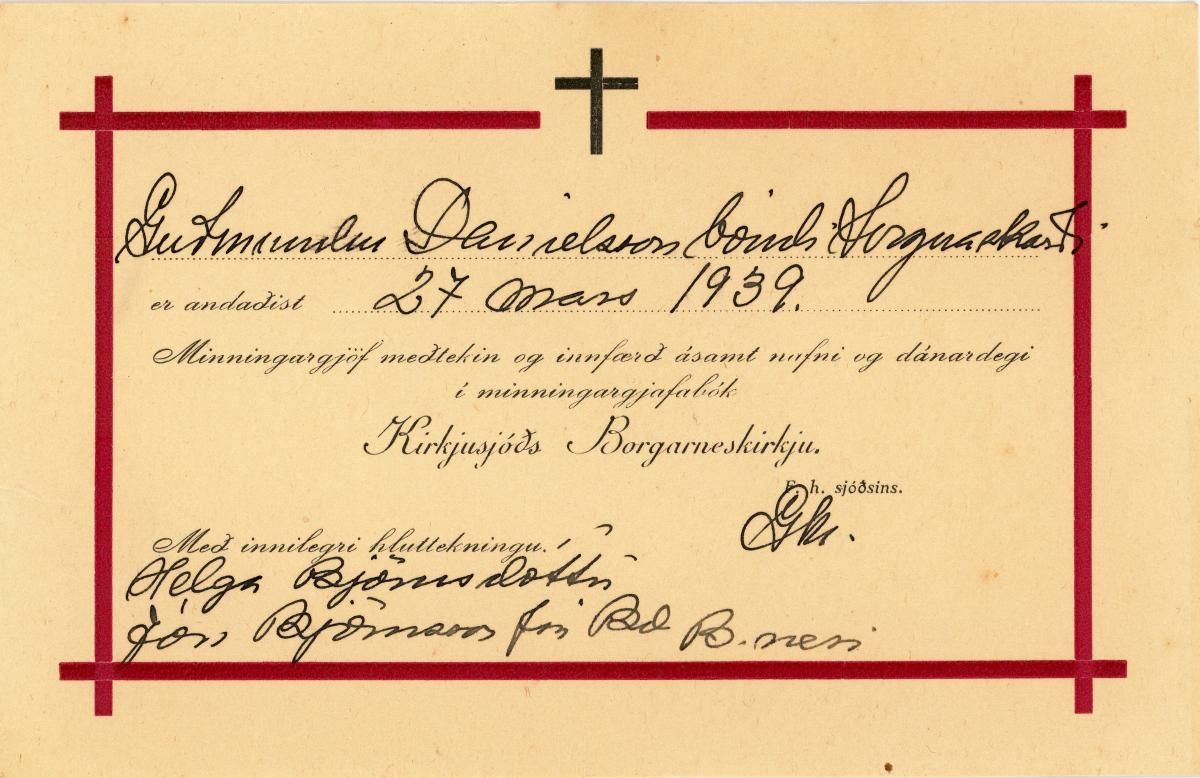 Guðmundur Danielsson bóndi Svignaskarði
er andaðist 27 mars 1939.
Minningargjöf meðtekin og innfærð ásamt nafni og dánardegi
í minningargjafabók
Kirkjusjóðs Borgarneskirkju.
F. h. sjóðsins.
Með innilegri hluttekningu.
Helga Björnsdóttir
Jón Björnsson frá Bæ B.nesi